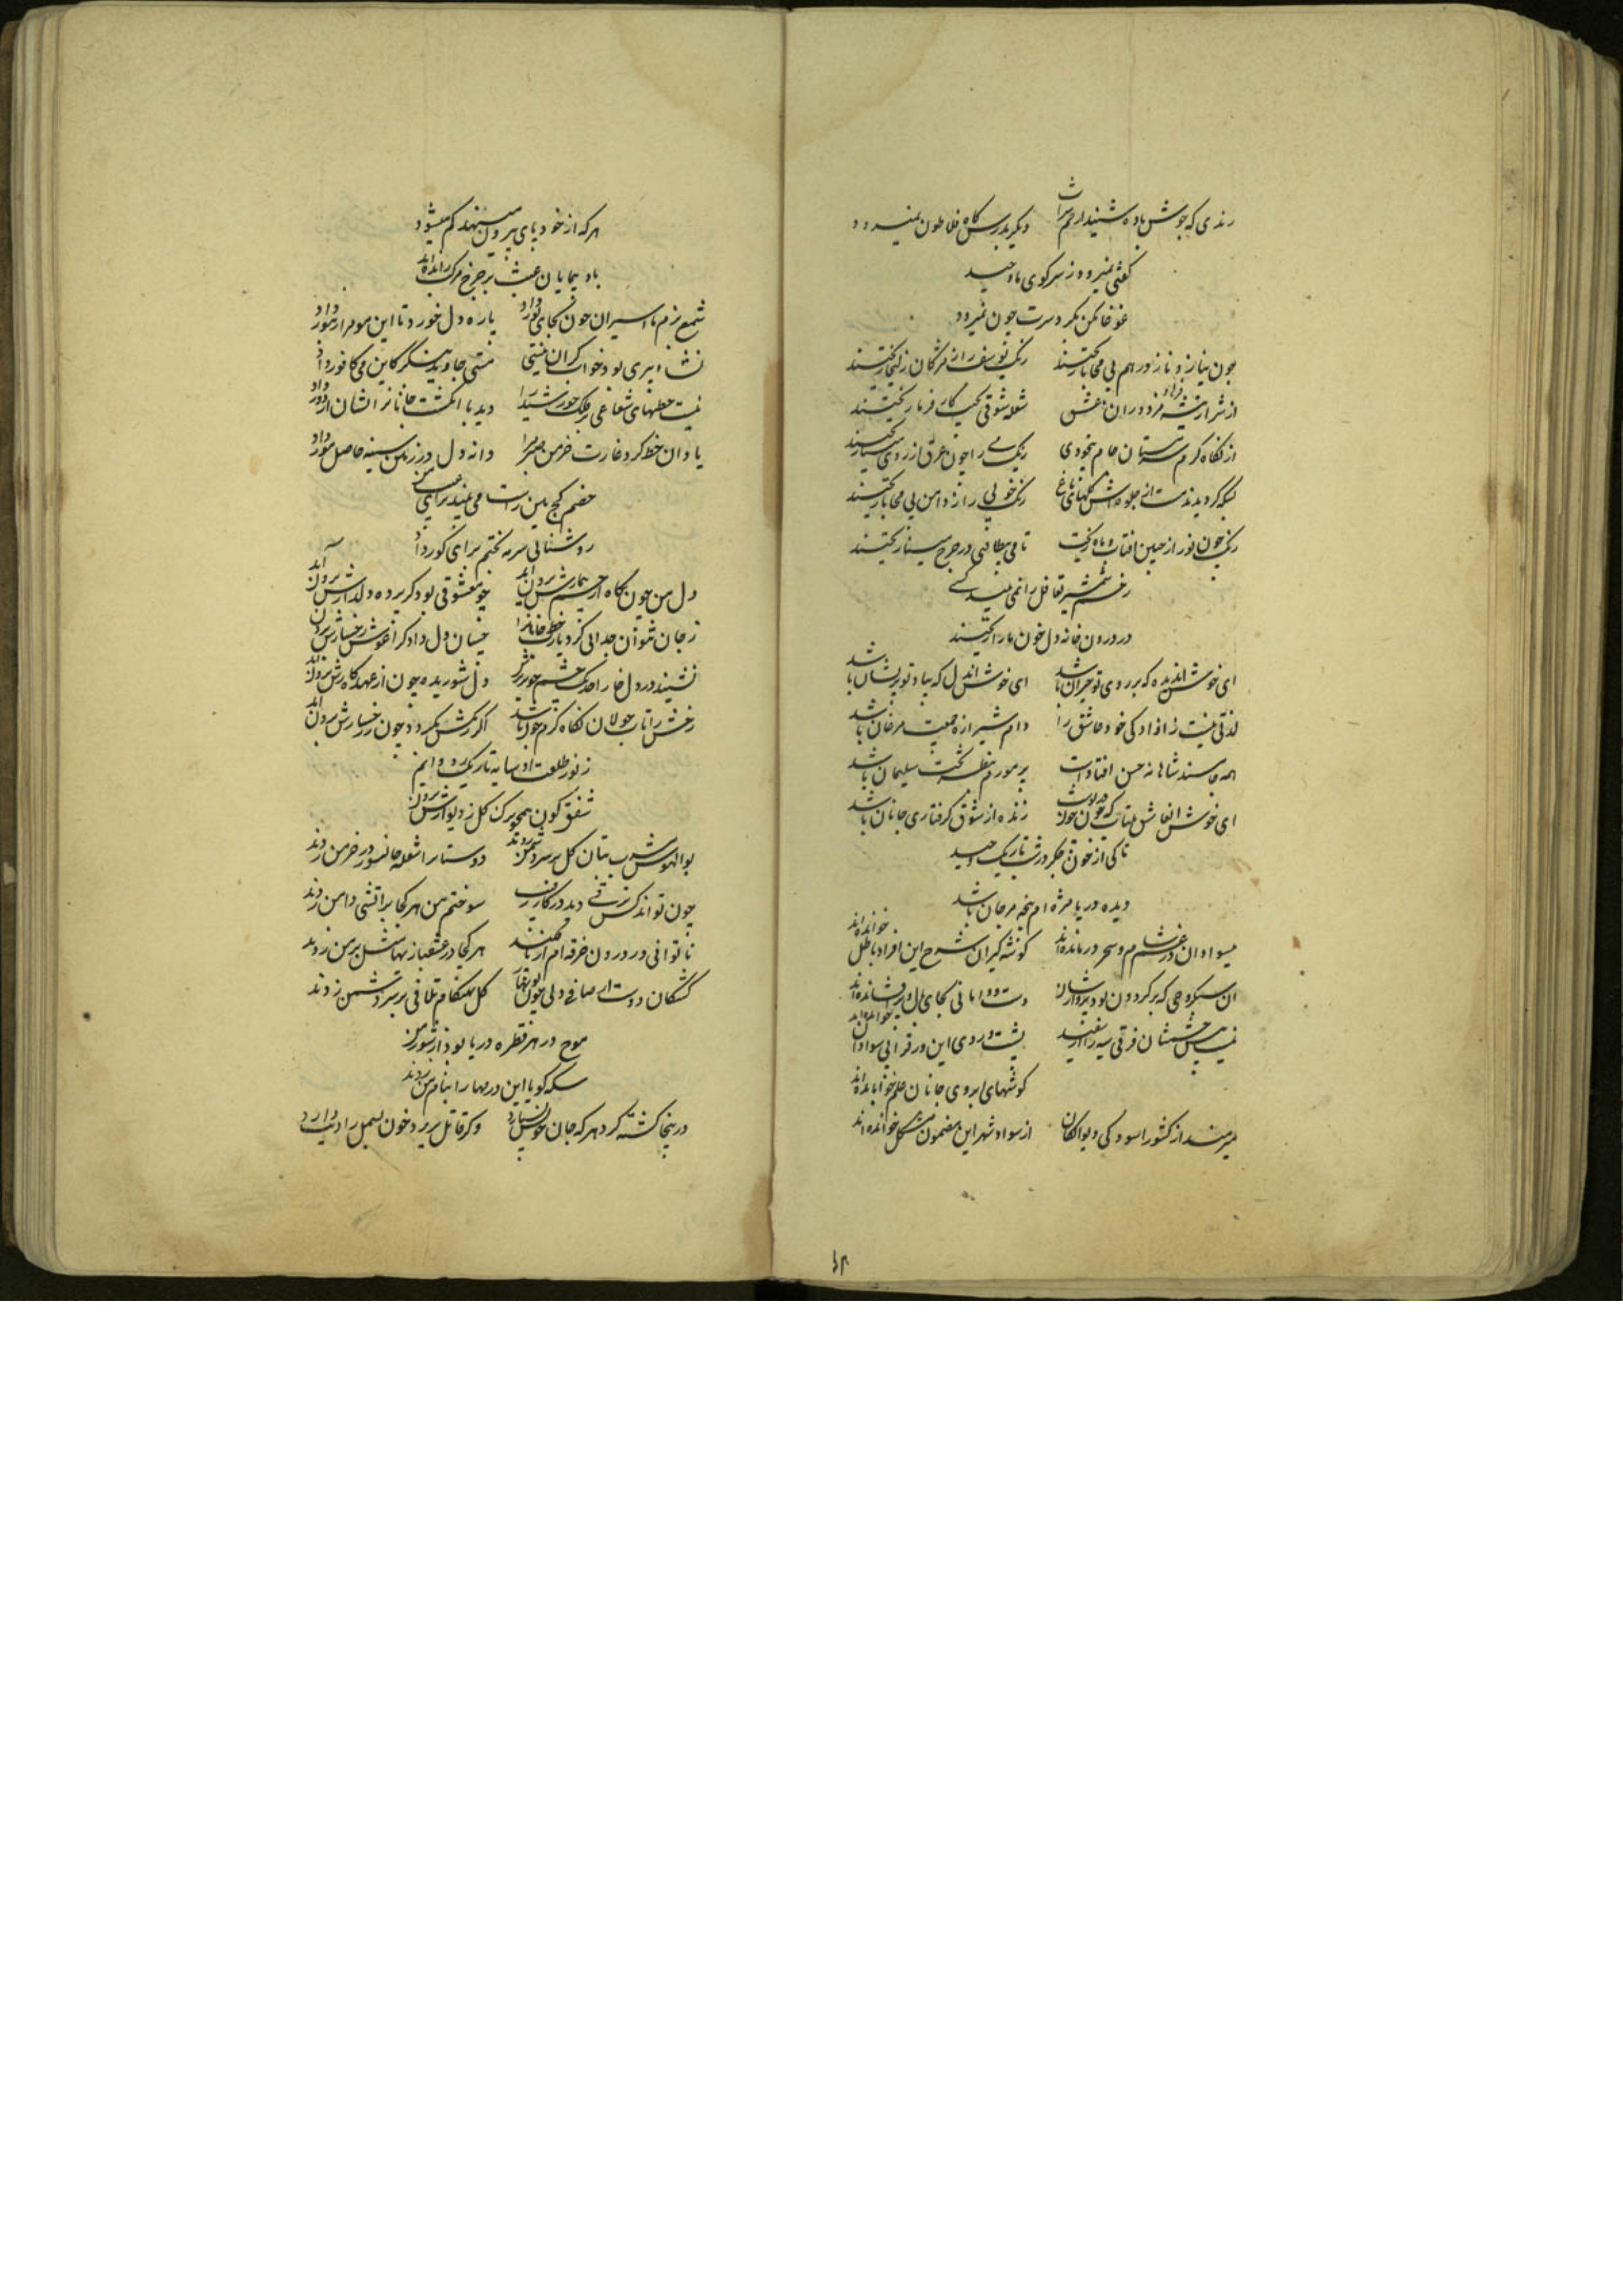 رندی که جوش باده شنید از خم شراب دیگر بدرس گاه فلاطون نمیرود
گفتی نمیرود ز سر کوی ما وحید
غوغا مکن مگر دست چون نمیرود
چون نیاز و ناز در هم بی محابا ریختند رنگ یوسف را از مژگان زلیخا ریختند
از شرار تیشه فرهاد دوران عشق شعله شوقی کار فرما ریختند
از نگاه گرم مستان جام بیخودی رنگ می را چون عرق از روی مینا ریختند
بسکه گردیدند مست از جلوه اش گلهای باغ رنگ خوبی را ز دامن بی محابا ریختند
رنگ چون نور از جبین افتاب و ماه ریخت تا می در چرخ مینا ریختند
زخم شمشیر تغافل را نمی بیند کسی
در درون خانه دل خون ما را ریختند
ای خوش آن دیده که بر روی تو حیران باشد ای خوش آن دل که بیاد تو پریشان باشد
لذتی نیست ز ازادکی خود عاشق را دام شیرازه جمعیت مرغان باشد
همه جا مسند شاهانه حسن افتاده است بر مور نظر تخت سلیمان باشد
ای خوش آن عاشق بیتاب که چون زنده از شوق گرفتاری جانان باشد
تا کی از خون جگر در شب تاریک وحید
دیده دریا مژه ام پنجه مرجان باشد
بیسوادان در غم و سحر درمانده اند گوشه گیران شرح این افراد باطل خوانده اند
آن سبکروحی که بر گردون بود پروازشان دست و دامانی کجا افشانده اند
نیست پیش چشمشان فرقی سیه را از سفید پشت و روی این ورق را بی سوادان خوانده اند
گوشهای ابروی جانان خوابانده اند
میرمند از کشور اسودگی دیوانگان از سواد شهر این مضمون مشکل خوانده اند
هر که از خود پای بیرون مینهد گم میشود
باد پیمایان عبث بر چرخ مرکب رانده اند
شمع بزم ما اسیران چون کجای نور داد پاره دل خورد تا این موم را زنبور داد
نشاء پیری بود خواب گران نیستی مستی جاوید بنگر کاین می کافور داد
نیست خطهای شعاعی بر فلک خورشید را دید با انگشت جانان را نشان از دور داد
یاد آن خط کرد غارت خرمن صبر مرا دانه دل در زمین سینه حاصل مور داد
خصم کج بین راست می بیند برای عیب من
روشنایی سرمه بختم برای کور داد
دل من چون نگاه از چشم بیمارش برون آید چو معشوقی بود کز پرده دلدارش برون آید
ز جان نتوان جدایی کرد یا رب خط جانان را چسان دل داد کز آغوش رخسارش برون آید
نشیند در دل خارا خدنگ چشم خونریزش دل شوریده چون از عهده کارش برون آید
رخش را تاب جولان نگاه گرم چون باشد اگر رنگش بگردد چون ز رخسارش برون آید
ز نور طلعت او سایه تاریک رو دایم
شفق گون همچو برگ گل ز دیوارش برون
بوالهوس شب بتان گل بر سر دشمن زدند دوستانرا شعله جانسوز در خرمن زدند
چون تواند کس ترقی دید در کار رقیب سوختم من هر کجا بر آتشی دامن زدند
ناتوانی در درون خرقه ام افکند هر کجا در عشقبازیها مثل بر من زدند
کشتگان دوست را صافی دلی چون گل بهنگام تلافی بر سر دشمن زدند
موج در هر قطره دریا بود از شور من
سکه گویا این درمها را بنام من زدند
در پنجا کشته گردد هر که جان خویش بسپارد وگر قاتل بریزد خون بسمل را دیت دارد